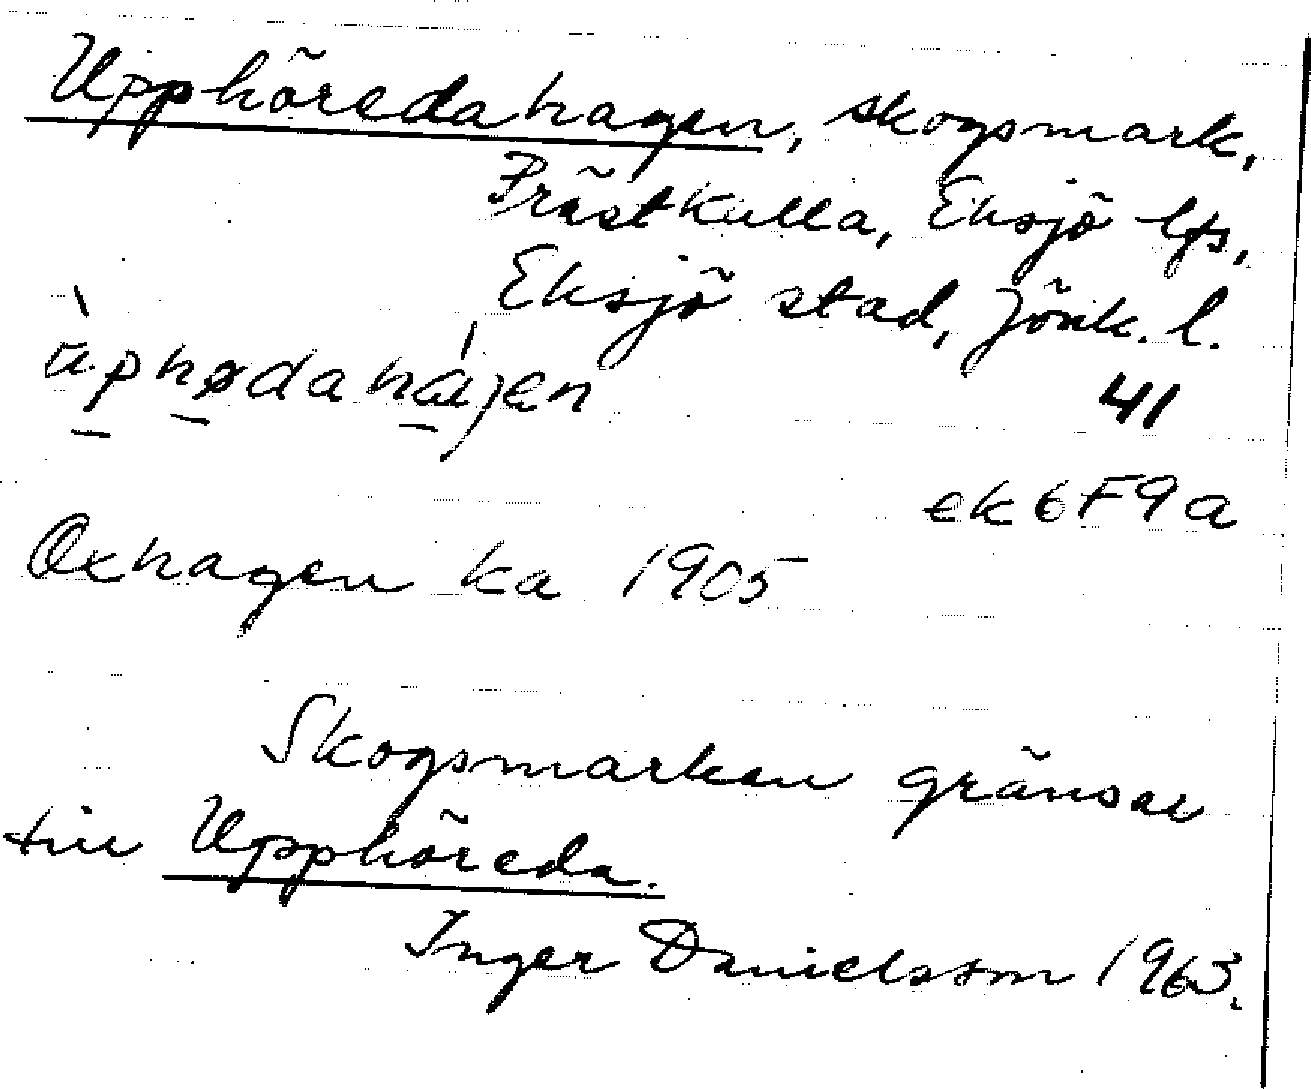 Upphöredahagen, skogsmark,
Prästkulla, Eksjö lfs,
Eksjö stad, Jönk. l.
ùphødahájen
41
ek 6F9a
Oxhagen ka 1905
Skogsmarken gränsar
till Upphöreda.
Inger Danielsson 1963.